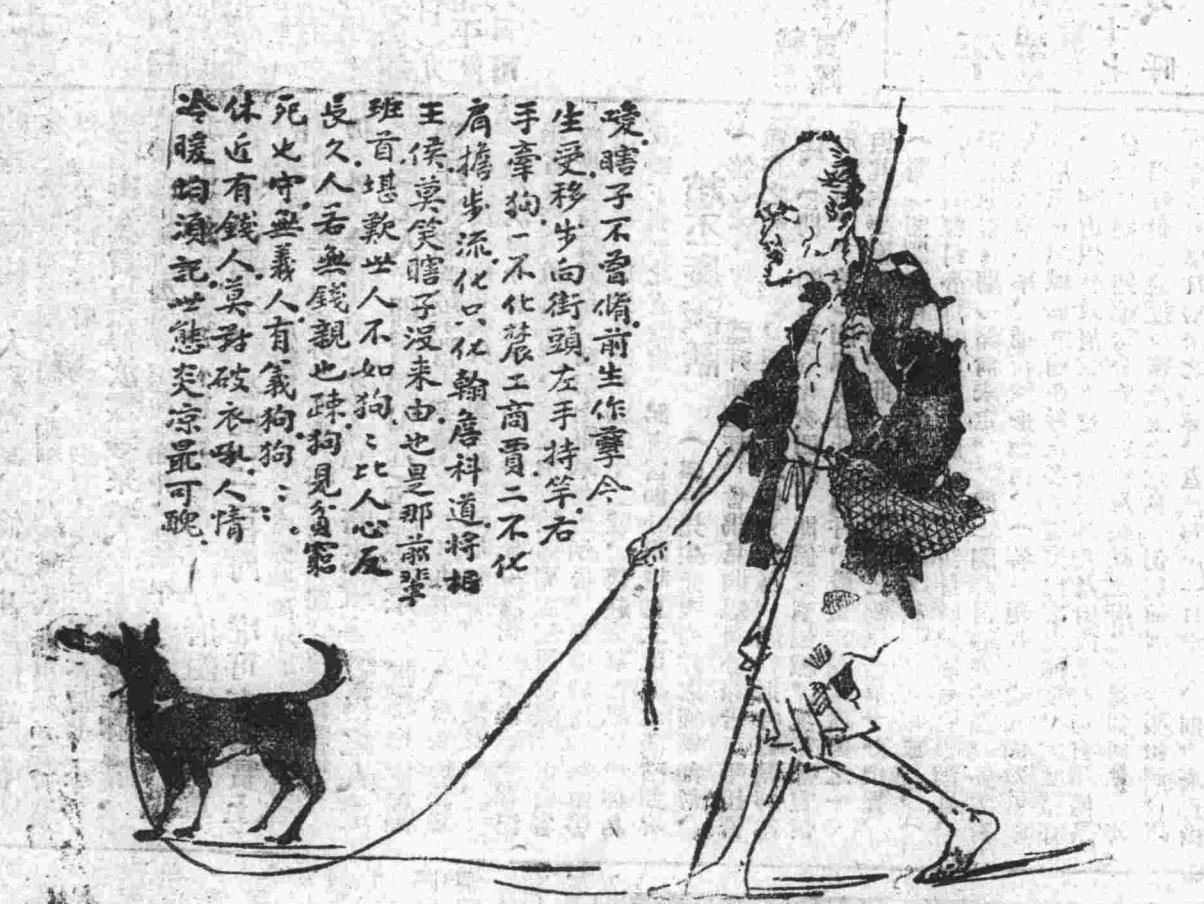 嗳瞎子不曾脩前生作孽今
生受移步向街頭左手持竿右
手牽狗一不化農工商賈二不化
肩擔步流化只化翰詹科道将相
王侯莫笑瞎子沒来由也是那前輩
班首堪歎世人不如狗〻比人心反
長久人若無錢親也疎狗見貧窮
死也守無義人有義狗狗〻〻
休近有錢人莫對破衣吼人情
冷暖均須記世態炎凉最可醜